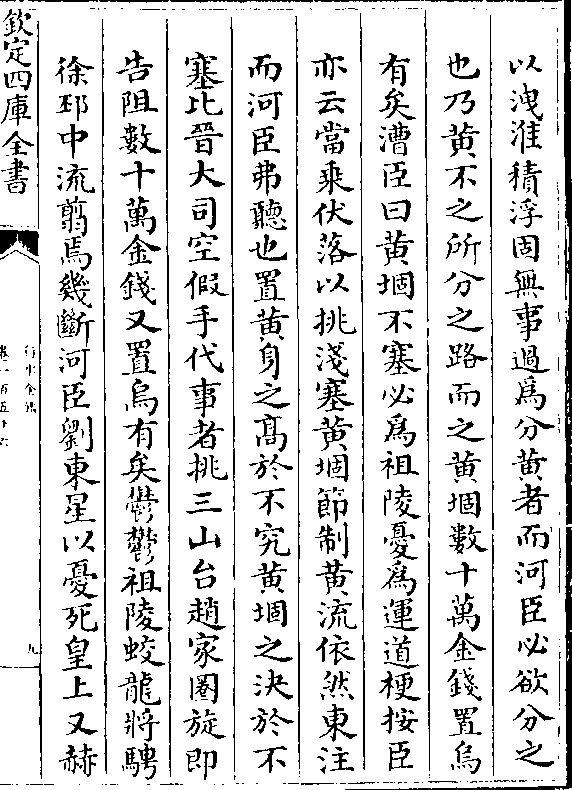 以洩淮積浮固無事過為分黄者而河臣必欲分之
也乃黄不之所分之路而之黄堌數十萬金錢置烏
有矣漕臣曰黄堌不塞必為祖陵憂為運道梗按臣
亦云當乗伏落以挑淺塞黄堌節制黄流依然東注
而河臣弗聽也置黄身之髙於不究黄堌之决於不
塞比晉大司空假手代事者挑三山台趙家圏旋即
告阻數十萬金錢又置烏有矣鬱鬱祖陵蛟龍將騁
徐邳中流翦焉幾斷河臣劉東星以憂死皇上又赫
欽定四庫全書
九